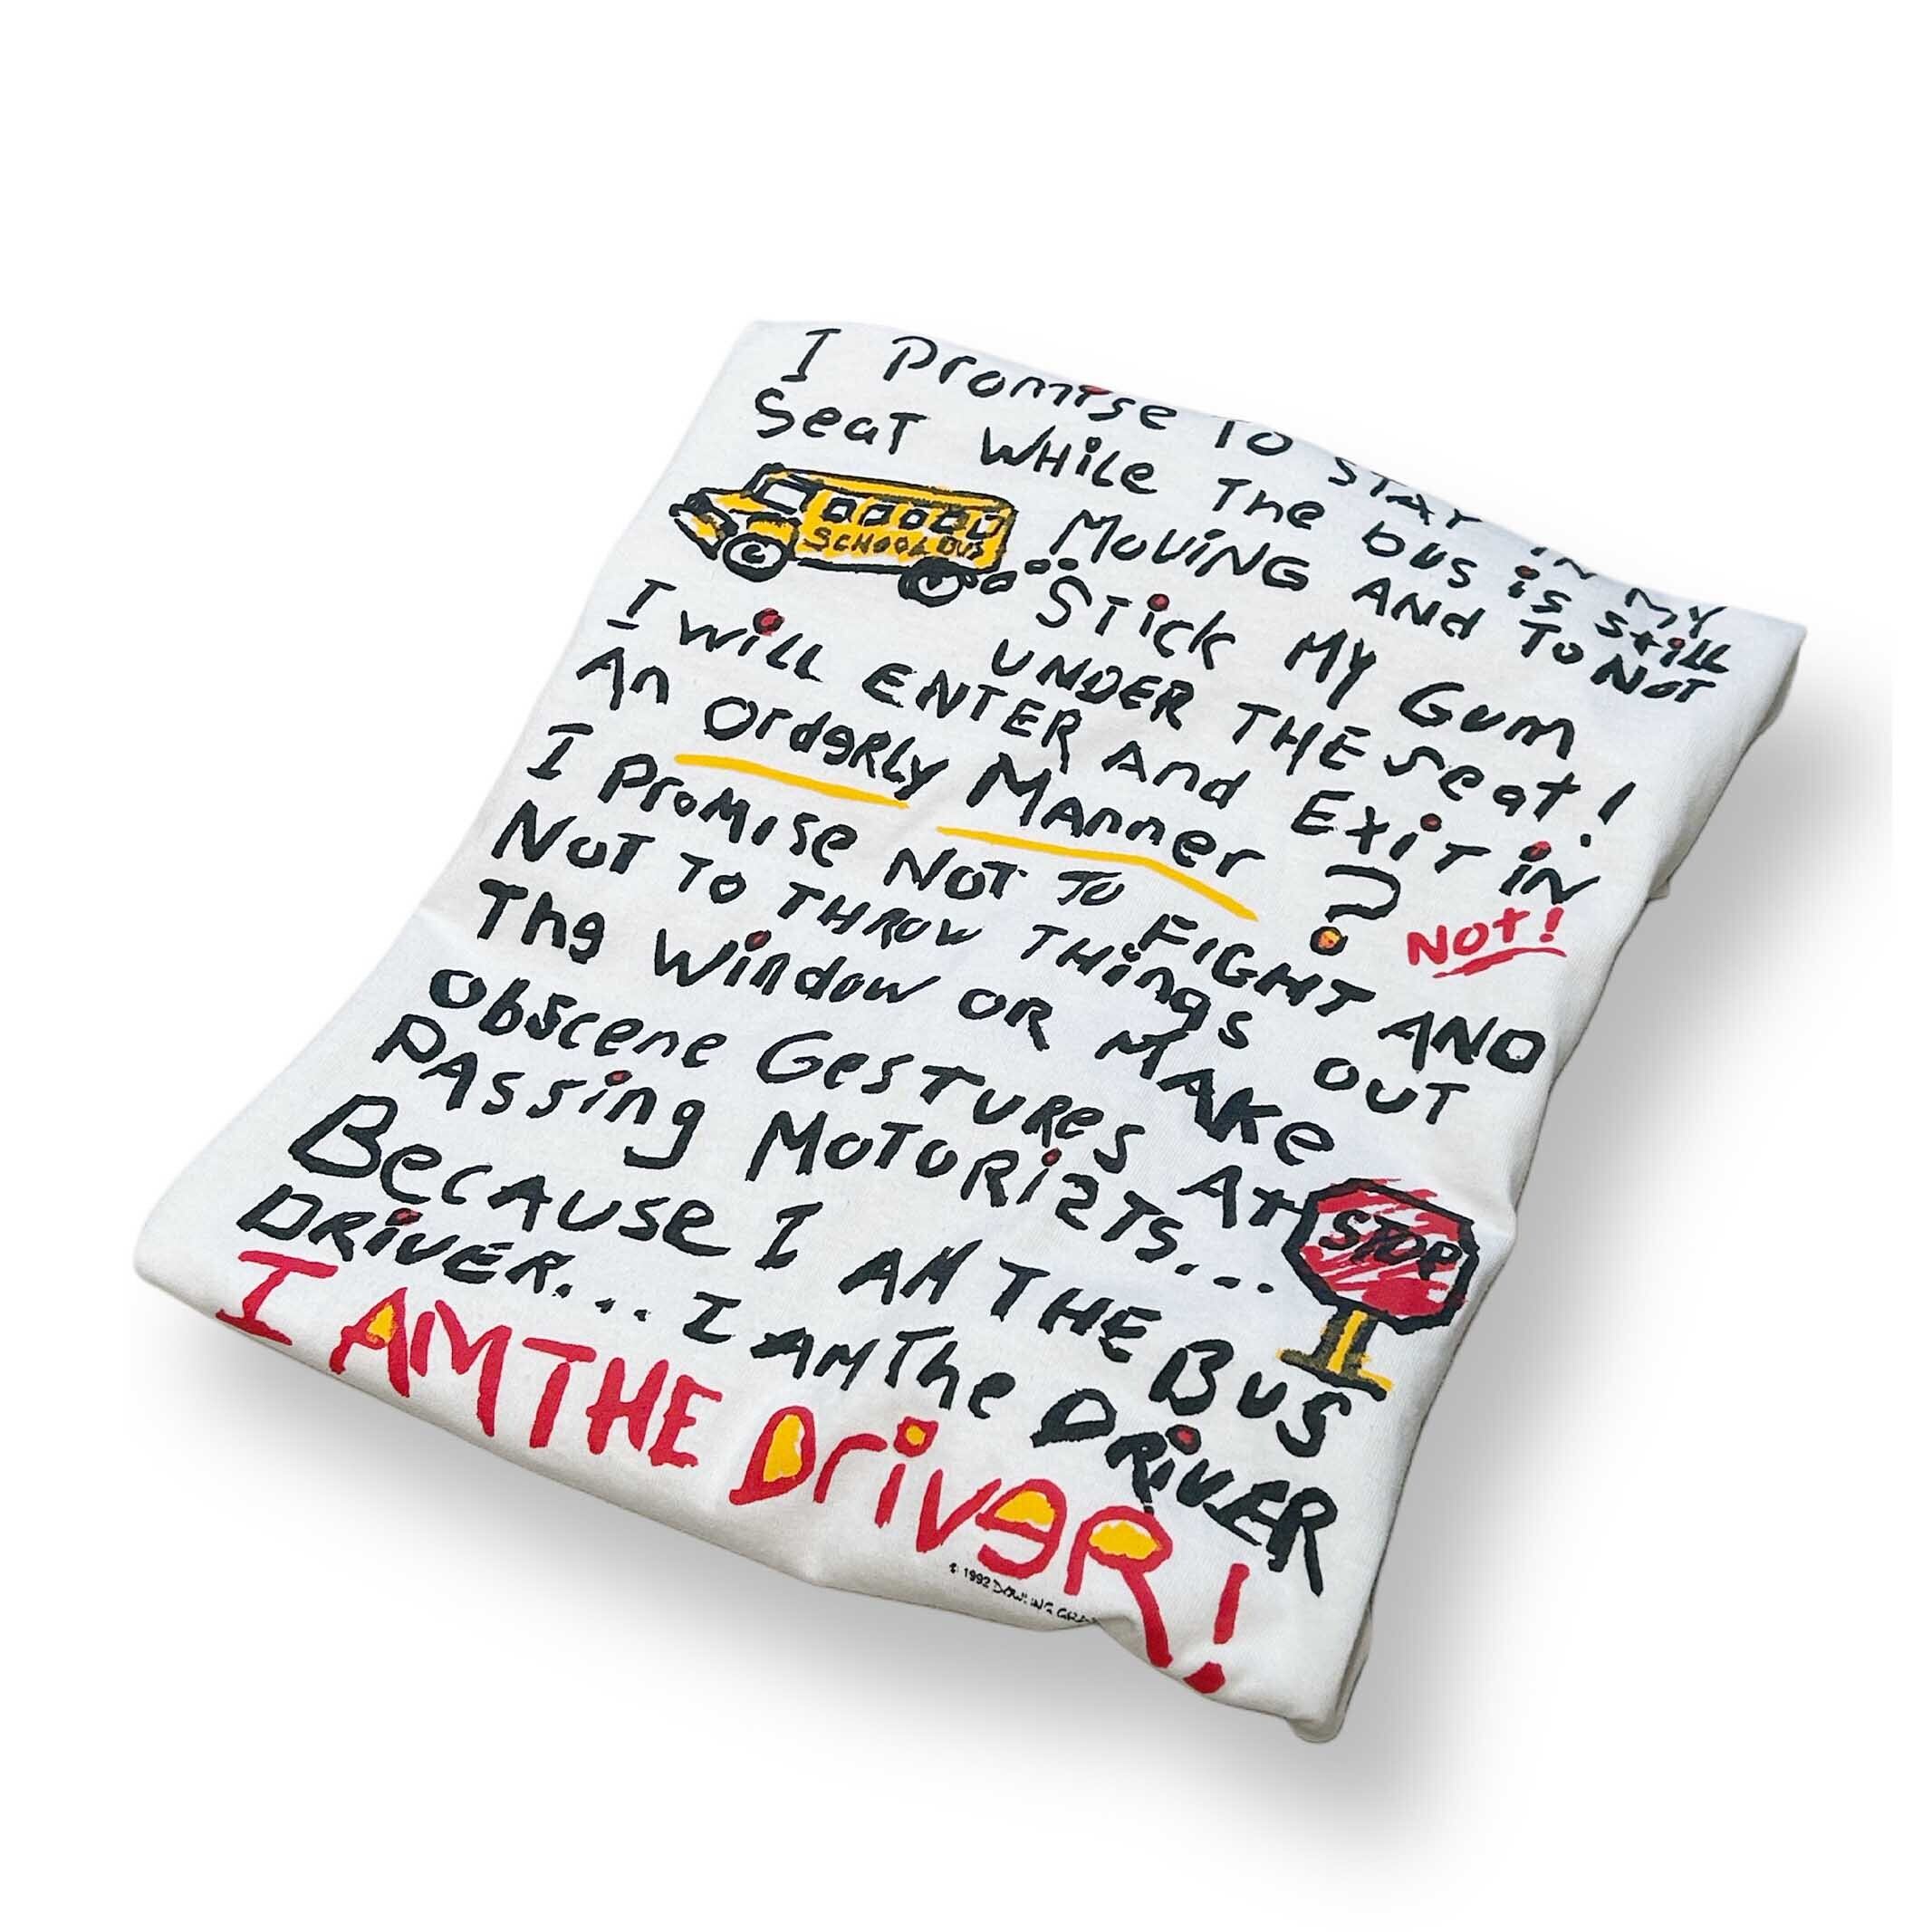 I Promise TO STAY IN MY
Seat WHile The bus is still
MOVING AND TO NOT
SCHOOL BUS
STick MY Gum
UNDER THE seat!
I will ENTER And ExiT iN
An OrdeRLy Manner ?
NOt!
I PrOMise NOT TO FIGHT AND
NOT TO THROW THings OUT
The Window OR MAKe
Obscene GesTURes At
PAssing MOTORiSTS...
STOP
BecAUSe I AM THE BUS
DRiVER... I AM The DRiVER
I AM THE DriveR!
© 1992